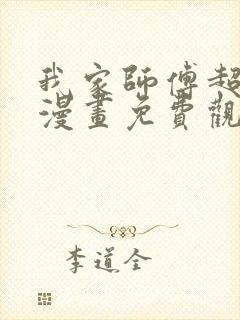 我家師傅超
漫畫免費觀
李道全